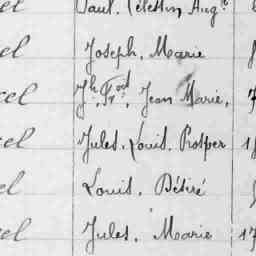 el Paul. Célestin Aug.te
el Joseph. Marie
cel Jh. Frod. Jean Marie, 7
el Jules. Louis. Prosper 18
el Louis. Désiré
el Jules. Marie 17